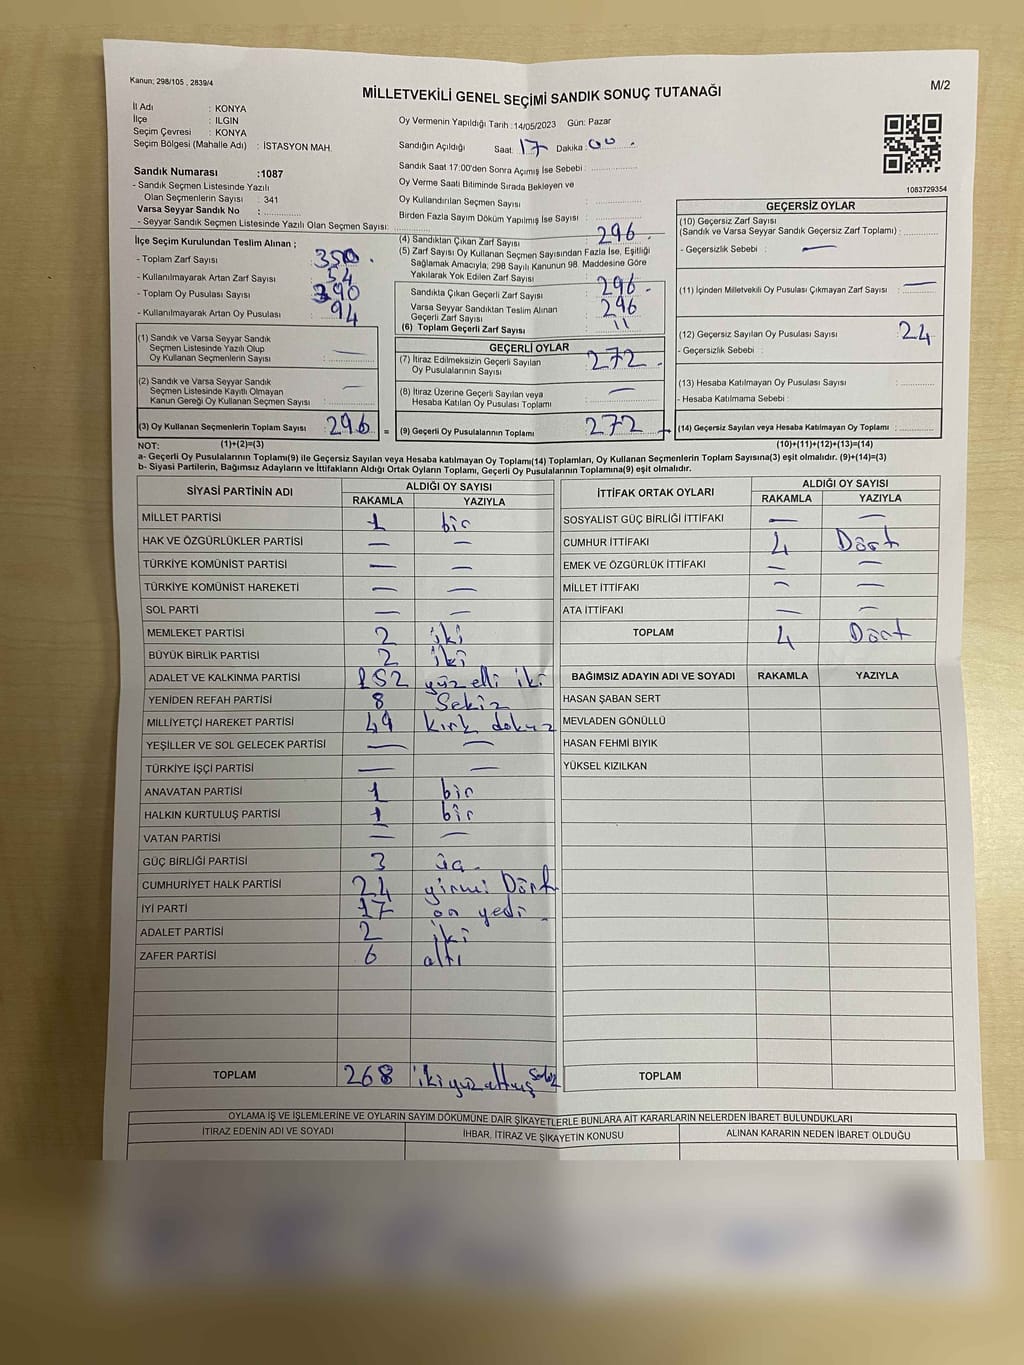 Kanun; 298/105 , 2839/4
M/2
MİLLETVEKİLİ GENEL SEÇİMİ SANDIK SONUÇ TUTANAĞI
İl Adı : KONYA
İlçe : ILGIN
Seçim Çevresi : KONYA
Seçim Bölgesi (Mahalle Adı) : İSTASYON MAH.
Sandık Numarası :1087
- Sandık Seçmen Listesinde Yazılı
Olan Seçmenlerin Sayısı : 341
Varsa Seyyar Sandık No : ............
- Seyyar Sandık Seçmen Listesinde Yazılı Olan Seçmen Sayısı: ............
Oy Vermenin Yapıldığı Tarih :14/05/2023 Gün: Pazar
Sandığın Açıldığı Saat: 17 Dakika: 00 .
Sandık Saat 17:00'den Sonra Açımış İse Sebebi : ............
Oy Verme Saati Bitiminde Sırada Bekleyen ve
Oy Kullandırılan Seçmen Sayısı : ............
Birden Fazla Sayım Döküm Yapılmış İse Sayısı : ............
1083729354
İlçe Seçim Kurulundan Teslim Alınan ;
- Toplam Zarf Sayısı : 350 .
- Kullanılmayarak Artan Zarf Sayısı : 54
- Toplam Oy Pusulası Sayısı : 390
- Kullanılmayarak Artan Oy Pusulası : 94
(1) Sandık ve Varsa Seyyar Sandık
Seçmen Listesinde Yazılı Olup
Oy Kullanan Seçmenlerin Sayısı : —
(2) Sandık ve Varsa Seyyar Sandık
Seçmen Listesinde Kayıtlı Olmayan
Kanun Gereği Oy Kullanan Seçmen Sayısı : —
(3) Oy Kullanan Seçmenlerin Toplam Sayısı : 296 =
(4) Sandıktan Çıkan Zarf Sayısı : 296 .
(5) Zarf Sayısı Oy Kullanan Seçmen Sayısından Fazla İse, Eşitliği
Sağlamak Amacıyla; 298 Sayılı Kanunun 98. Maddesine Göre
Yakılarak Yok Edilen Zarf Sayısı : ............
Sandıkta Çıkan Geçerli Zarf Sayısı : 296 -
Varsa Seyyar Sandıktan Teslim Alınan
Geçerli Zarf Sayısı : 296
(6) Toplam Geçerli Zarf Sayısı : 11
GEÇERLİ OYLAR
(7) İtiraz Edilmeksizin Geçerli Sayılan
Oy Pusulalarının Sayısı : 272 .
(8) İtiraz Üzerine Geçerli Sayılan veya
Hesaba Katılan Oy Pusulası Toplamı : —
(9) Geçerli Oy Pusulalarının Toplamı : 272 +
GEÇERSİZ OYLAR
(10) Geçersiz Zarf Sayısı
(Sandık ve Varsa Seyyar Sandık Geçersiz Zarf Toplamı) : ............
- Geçersizlik Sebebi : —
(11) İçinden Milletvekili Oy Pusulası Çıkmayan Zarf Sayısı : —
(12) Geçersiz Sayılan Oy Pusulası Sayısı : 24
- Geçersizlik Sebebi :
(13) Hesaba Katılmayan Oy Pusulası Sayısı : ............
- Hesaba Katılmama Sebebi :
(14) Geçersiz Sayılan veya Hesaba Katılmayan Oy Toplamı : ............
NOT: (1)+(2)=(3) (10)+(11)+(12)+(13)=(14)
a- Geçerli Oy Pusulalarının Toplamı(9) ile Geçersiz Sayılan veya Hesaba katılmayan Oy Toplamı(14) Toplamları, Oy Kullanan Seçmenlerin Toplam Sayısına(3) eşit olmalıdır. (9)+(14)=(3)
b- Siyasi Partilerin, Bağımsız Adayların ve İttifakların Aldığı Ortak Oyların Toplamı, Geçerli Oy Pusulalarının Toplamına(9) eşit olmalıdır.
SİYASİ PARTİNİN ADI ALDIĞI OY SAYISI
RAKAMLA YAZIYLA
MİLLET PARTİSİ 1 bir
HAK VE ÖZGÜRLÜKLER PARTİSİ — —
TÜRKİYE KOMÜNİST PARTİSİ — —
TÜRKİYE KOMÜNİST HAREKETİ — —
SOL PARTİ — —
MEMLEKET PARTİSİ 2 iki
BÜYÜK BİRLİK PARTİSİ 2 iki
ADALET VE KALKINMA PARTİSİ 152 yüz elli iki
YENİDEN REFAH PARTİSİ 8 Sekiz
MİLLİYETÇİ HAREKET PARTİSİ 49 kırk dokuz
YEŞİLLER VE SOL GELECEK PARTİSİ — —
TÜRKİYE İŞÇİ PARTİSİ — —
ANAVATAN PARTİSİ 1 bir
HALKIN KURTULUŞ PARTİSİ 1 bir
VATAN PARTİSİ — —
GÜÇ BİRLİĞİ PARTİSİ 3 üç
CUMHURİYET HALK PARTİSİ 24 yirmi Dört
İYİ PARTİ 17 on yedi -
ADALET PARTİSİ 2 iki
ZAFER PARTİSİ 6 altı
TOPLAM 268 ikiyüz altmış Sekiz
İTTİFAK ORTAK OYLARI ALDIĞI OY SAYISI
RAKAMLA YAZIYLA
SOSYALİST GÜÇ BİRLİĞİ İTTİFAKI — —
CUMHUR İTTİFAKI 4 Dört
EMEK VE ÖZGÜRLÜK İTTİFAKI — —
MİLLET İTTİFAKI — —
ATA İTTİFAKI — —
TOPLAM 4 Dört
BAĞIMSIZ ADAYIN ADI VE SOYADI RAKAMLA YAZIYLA
HASAN ŞABAN SERT
MEVLADEN GÖNÜLLÜ
HASAN FEHMİ BIYIK
YÜKSEL KIZILKAN
TOPLAM
OYLAMA İŞ VE İŞLEMLERİNE VE OYLARIN SAYIM DÖKÜMÜNE DAİR ŞİKAYETLERLE BUNLARA AİT KARARLARIN NELERDEN İBARET BULUNDUKLARI
İTİRAZ EDENİN ADI VE SOYADI İHBAR, İTİRAZ VE ŞİKAYETİN KONUSU ALINAN KARARIN NEDEN İBARET OLDUĞU